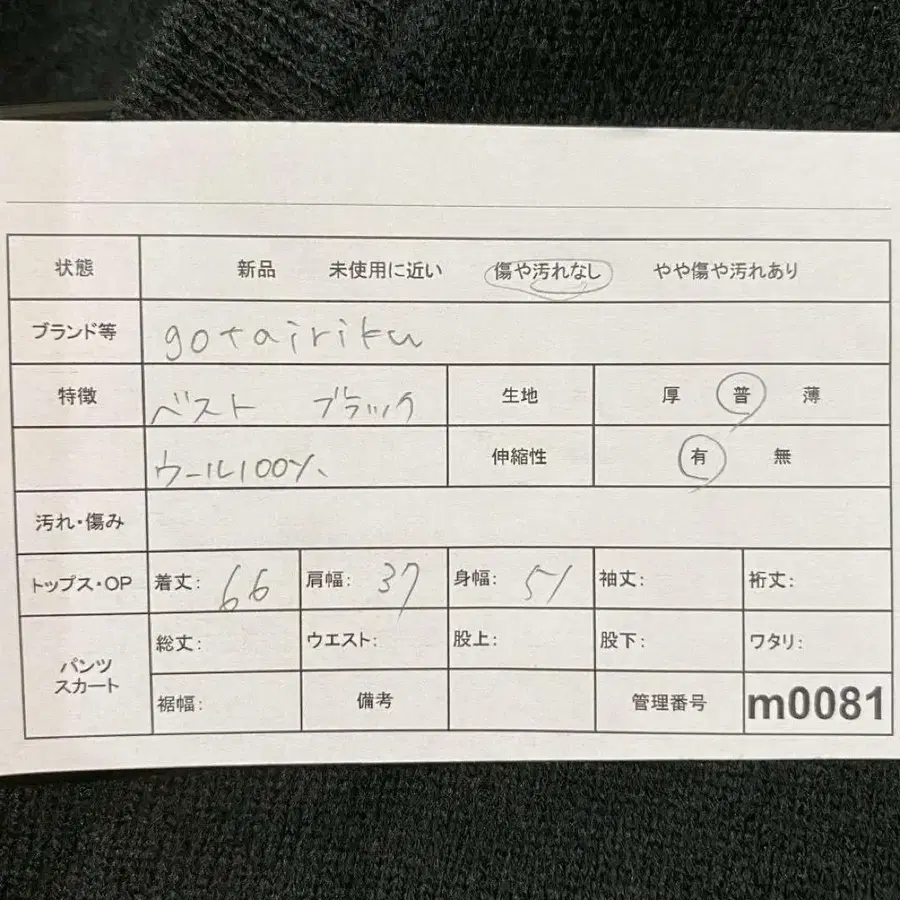 状態 新品 未使用に近い 傷や汚れなし やや傷や汚れあり
ブランド等 gotairiku
特徴 ベスト ブラック 生地 厚 普 薄
ウール100% 伸縮性 有 無
汚れ・傷み
トップス・OP 着丈: 66 肩幅: 37 身幅: 51 袖丈: 裄丈:
パンツ スカート 総丈: ウエスト: 股上: 股下: ワタリ:
裾幅: 備考 管理番号 m0081